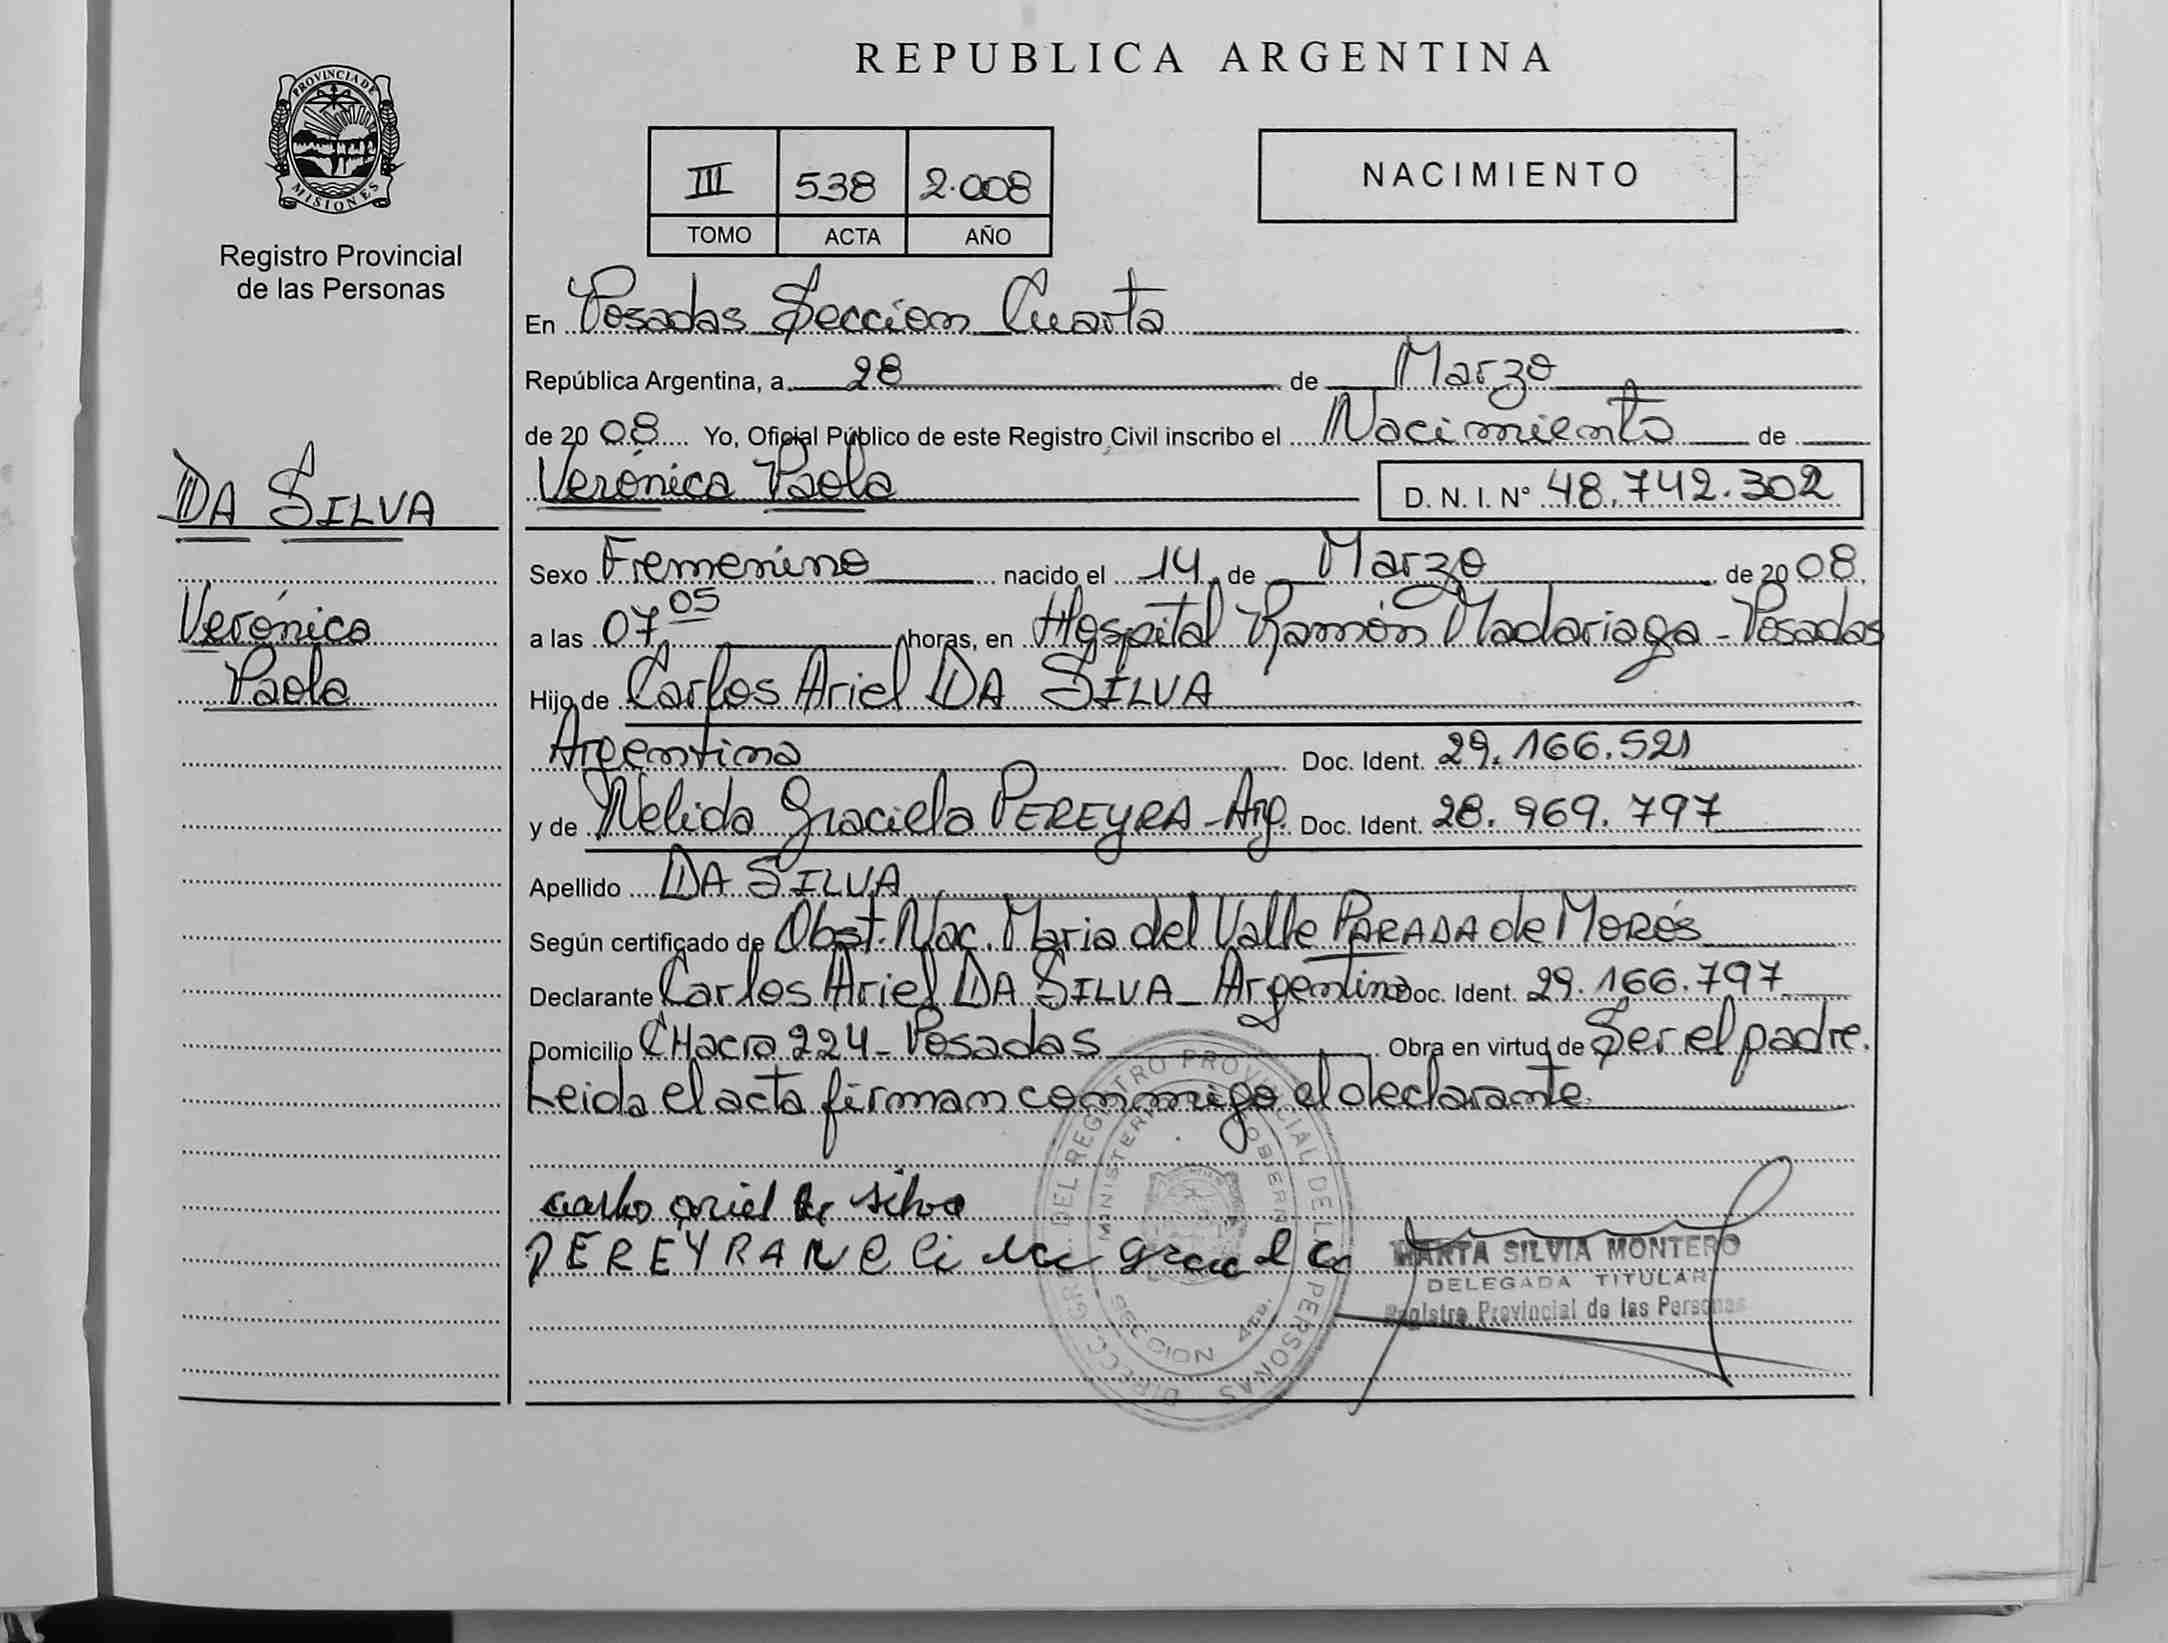 REPUBLICA ARGENTINA
PROVINCIA DE
MISIONES
Registro Provincial
de las Personas
III 538 2.008
TOMO ACTA AÑO
NACIMIENTO
En Posadas Seccion Cuarta
República Argentina, a 28 de Marzo
de 20 08 Yo, Oficial Público de este Registro Civil inscribo el Nacimiento de
Verónica Paola D. N. I. N° 48.742.302
DA SILVA
Verónica
Paola
Sexo Femenino nacido el 14 de Marzo de 20 08
a las 07,05 horas, en Hospital Ramón Madariaga - Posadas
Hijo de Carlos Ariel DA SILVA
Argentina Doc. Ident. 29.166.521
y de Nelida Graciela PEREYRA - Arg. Doc. Ident. 28.969.797
Apellido DA SILVA
Según certificado de Obst. Nac. Maria del Valle PARADA de MORÉS
Declarante Carlos Ariel DA SILVA - Argentino Doc. Ident. 29.166.797
Domicilio CHacra 224 - Posadas Obra en virtud de Ser el padre.
Leida el acta firman conmigo el declarante
carlos ariel da silva
PEREYRA NElida graciela
MARTA SILVIA MONTERO
DELEGADA TITULAR
Registro Provincial de las Personas
DIRECC. GRAL. DEL REGISTRO PROVINCIAL DE LAS PERSONAS
MINISTERIO GOBIERNO
SECCION 4TA.